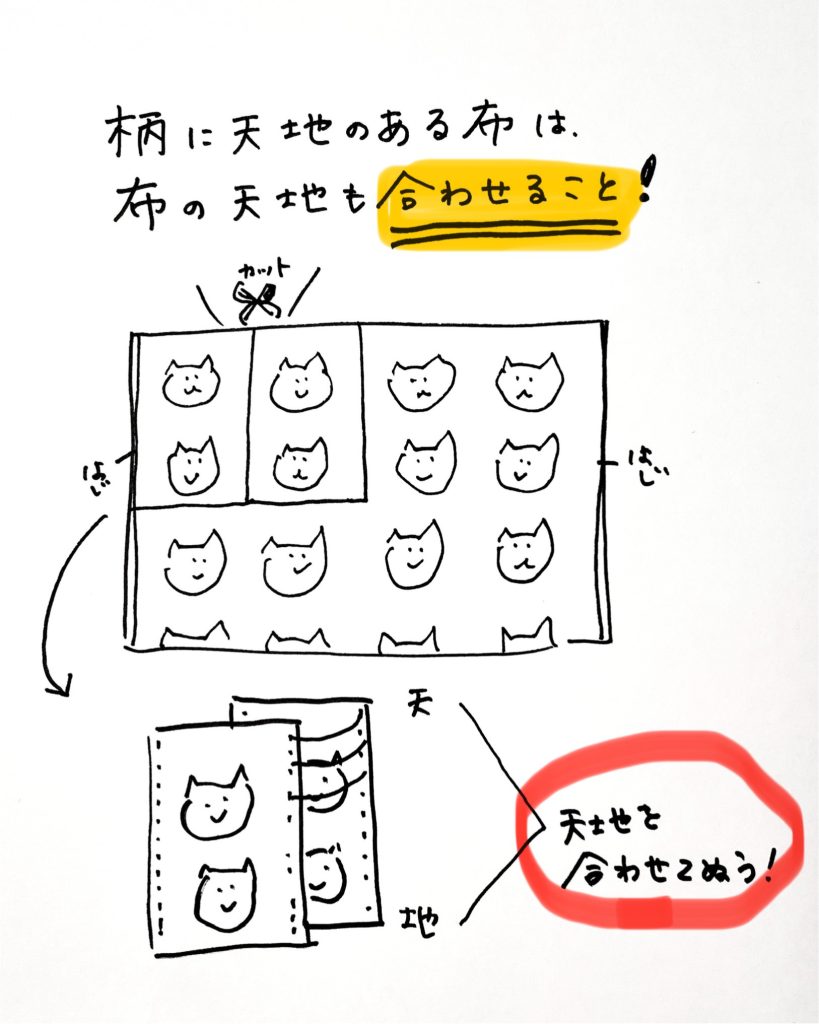 柄に天地のある布は、
布の天地も合わせること!
カット
はし
はし
天
地
天地を
合わせてぬう!